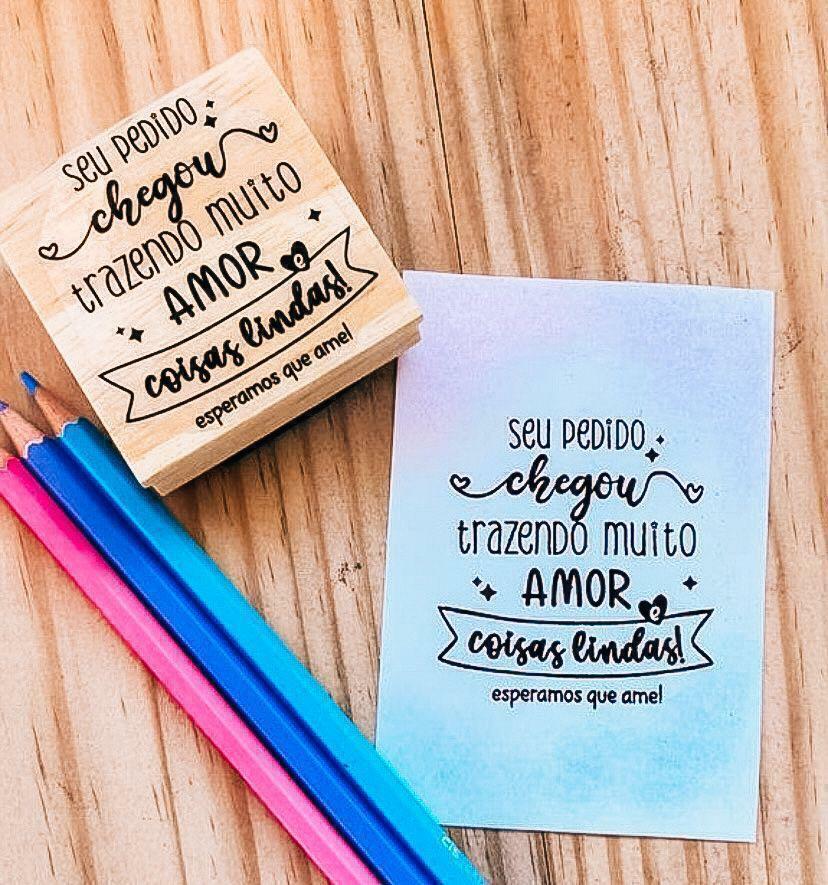 seu pedido
chegou
trazendo muito
AMOR e
coisas lindas!
esperamos que ame!
seu pedido
chegou
trazendo muito
AMOR e
coisas lindas!
esperamos que ame!